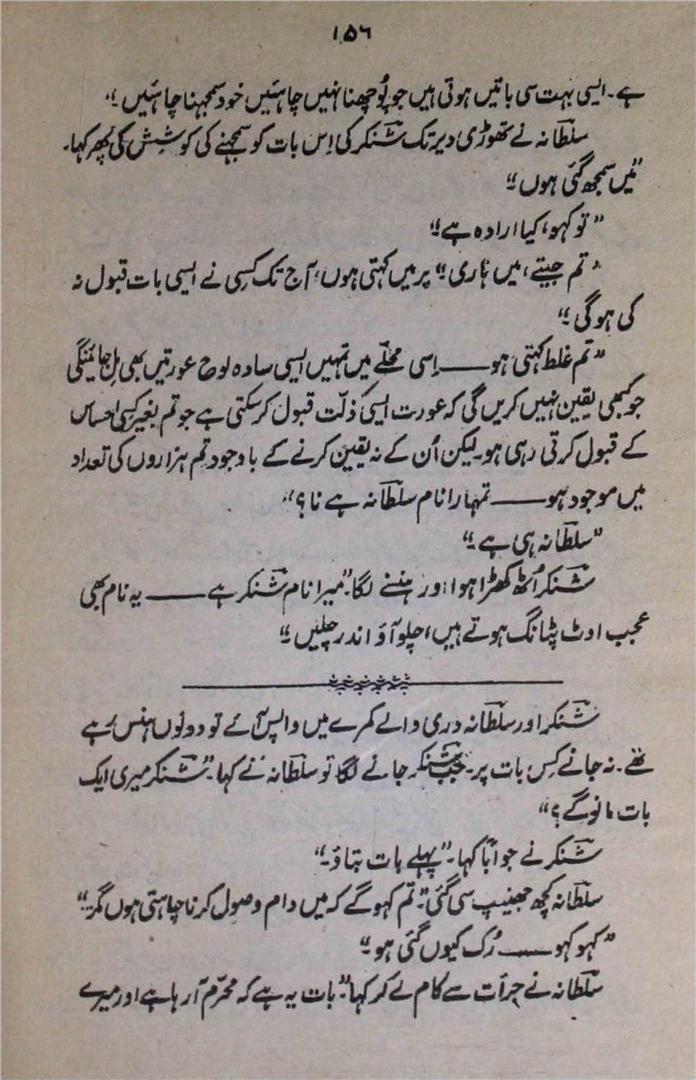 ۱۵۶
ہے۔ ایسی بہت سی باتیں ہوتی ہیں جو پُوچھنا نہیں چاہئیں خود سمجھنا چاہئیں ۔"
سلطانہ نے تھوڑی دیر تک شنکر کی اِس بات کو سمجھنے کی کوشش کی پھر کہا۔
"میں سمجھ گئی ہوں ۔"
"تو کہو، کیا ارادہ ہے۔"
"تم جیتے، میں ہاری۔" پر میں کہتی ہوں، آج تک کسی نے ایسی بات قبول نہ
کی ہوگی ۔"
"تم غلط کہتی ہو ـــــ اِسی محلّے میں تمہیں ایسی سادہ لوح عورتیں بھی مل جائینگی
جو کبھی یقین نہیں کریں گی کہ عورت ایسی ذلّت قبول کر سکتی ہے جو تم بغیر کسی احساس
کے قبول کرتی رہی ہو۔ لیکن اُن کے نہ یقین کرنے کے باوجود تم ہزاروں کی تعداد
میں موجود ہو ـــــ تمہارا نام سلطانہ ہے نا؟"
"سلطانہ ہی ہے ۔"
شنکر اُٹھ کھڑا ہوا اور ہنسنے لگا۔ "میرا نام شنکر ہے ـــــ یہ نام بھی
عجب اوٹ پٹانگ ہوتے ہیں، چلو آؤ اندر چلیں ۔"
شنکر اور سلطانہ دری والے کمرے میں واپس آئے تو دونوں ہنس رہے
تھے۔ نہ جانے کِس بات پر۔ جب شنکر جانے لگا تو سلطانہ نے کہا۔ "شنکر میری ایک
بات مانو گے؟"
شنکر نے جواباً کہا۔ "پہلے بات بتاؤ۔"
سلطانہ کچھ جھینپ سی گئی۔ "تم کہو گے کہ میں دام وصول کرنا چاہتی ہوں مگر۔"
"کہو کہو ـــــ رُک کیوں گئی ہو۔"
سلطانہ نے جرأت سے کام لے کر کہا۔ "بات یہ ہے کہ محرّم آ رہا ہے اور میرے